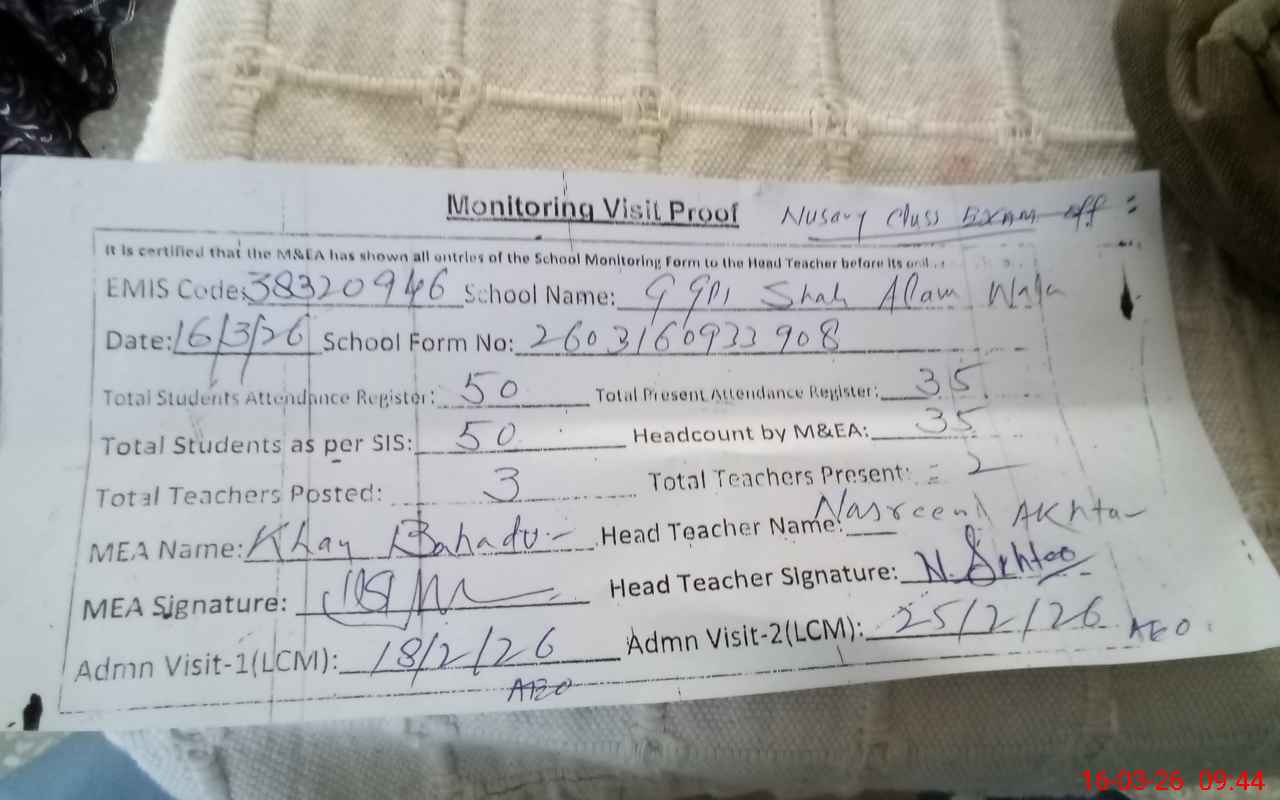 Monitoring Visit Proof Nusary Class Exam off :
It is certified that the M&EA has shown all entries of the School Monitoring Form to the Head Teacher before its
EMIS Code: 38320946 School Name: GGPS Shah Alam Wala
Date: 16/3/26 School Form No: 2603160933908
Total Students Attendance Register: 50 Total Present Attendance Register: 35
Total Students as per SIS: 50 Headcount by M&EA: 35
Total Teachers Posted: 3 Total Teachers Present: = 2
MEA Name: Khan Bahadur Head Teacher Name: Nasreen Akhtar
MEA Signature: Head Teacher Signature: N. Akhtar
Admn Visit-1(LCM): 18/2/26 Admn Visit-2(LCM): 25/2/26 AEO
AEO
16-03-26 09:44